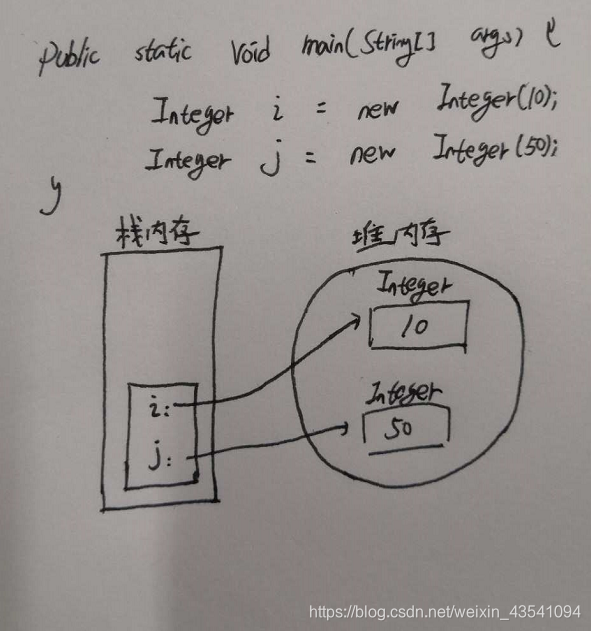 public static void main(String[] args) {
Integer i = new Integer(10);
Integer j = new Integer(50);
}
栈内存 堆内存
Integer
10
Integer
i:
50
j:
https://blog.csdn.net/weixin_43541094